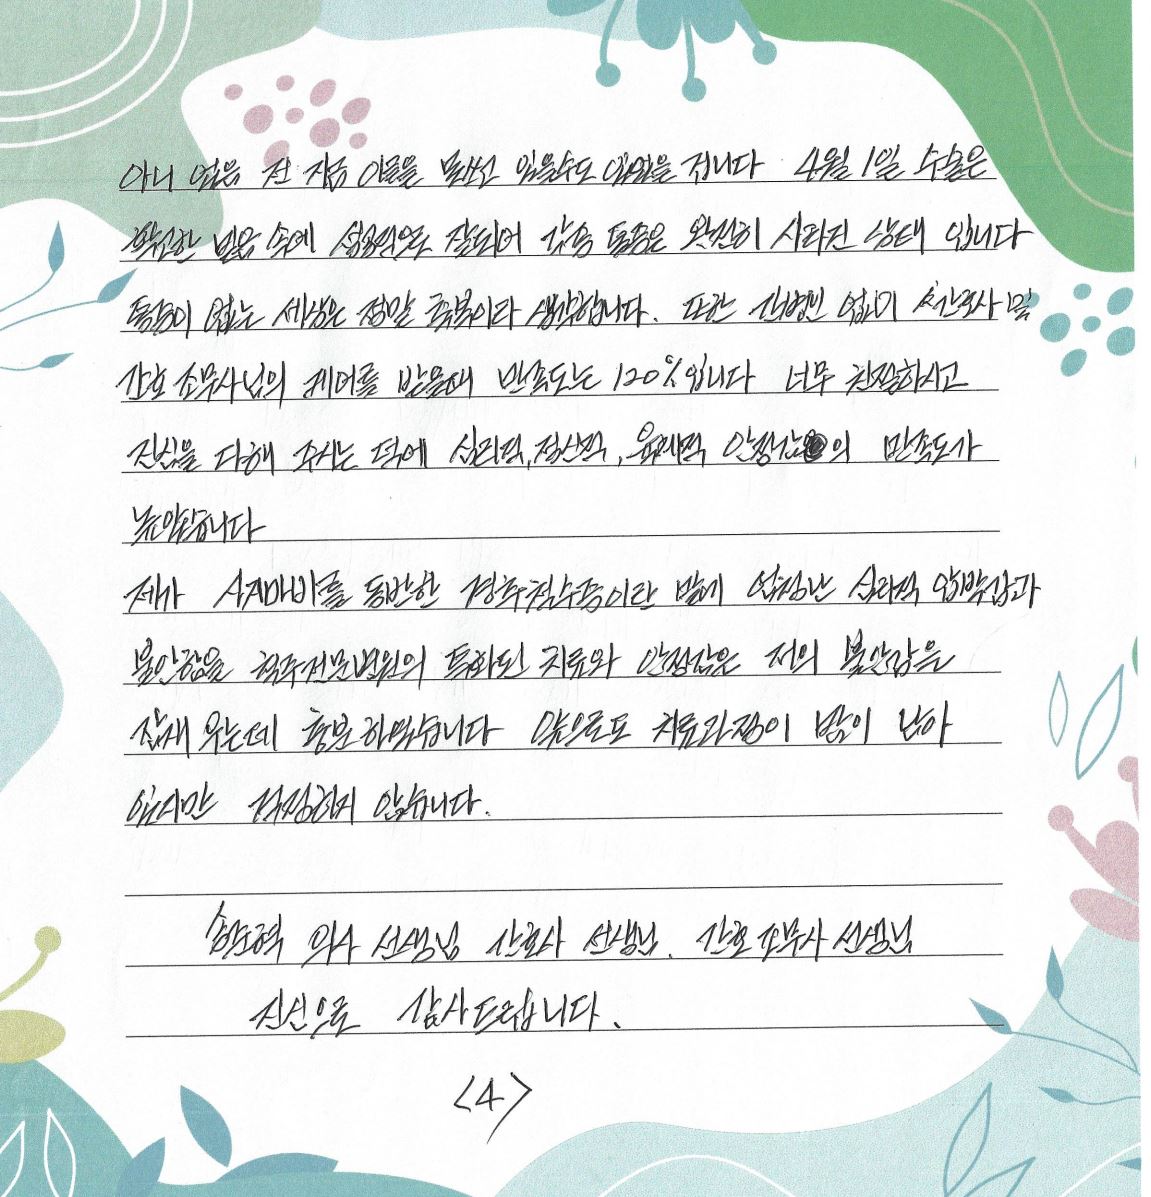 아니 였음 전 지금 이몸을 말써 있을수도 있었을 겁니다 4월 1일 수술은
확신한 믿음 속에 성공적으로 잘되어 각종 통증은 완전히 사라진 상태 입니다
통증이 없는 세상은 정말 축복이라 생각합니다. 또한 간병인 없이 간호사 및
간호 조무사님의 케어를 받을때 만족도는 120%입니다 너무 친절하시고
진심을 다해 주시는 덕에 심리적, 정신적, 육체적 안정감의 만족도가
높았습니다
제가 사지마비를 동반한 경추척수증이란 병에 엄청난 심리적 압박감과
불안함을 척추전문병원의 특화된 치료와 안정감은 저의 불안감을
잠재 우는데 충분 하였습니다 앞으로도 치료과정이 많이 남아
있지만 걱정하지 않습니다.
의사 선생님 간호사 선생님. 간호 조무사 선생님
진심으로 감사드립니다.
<4>